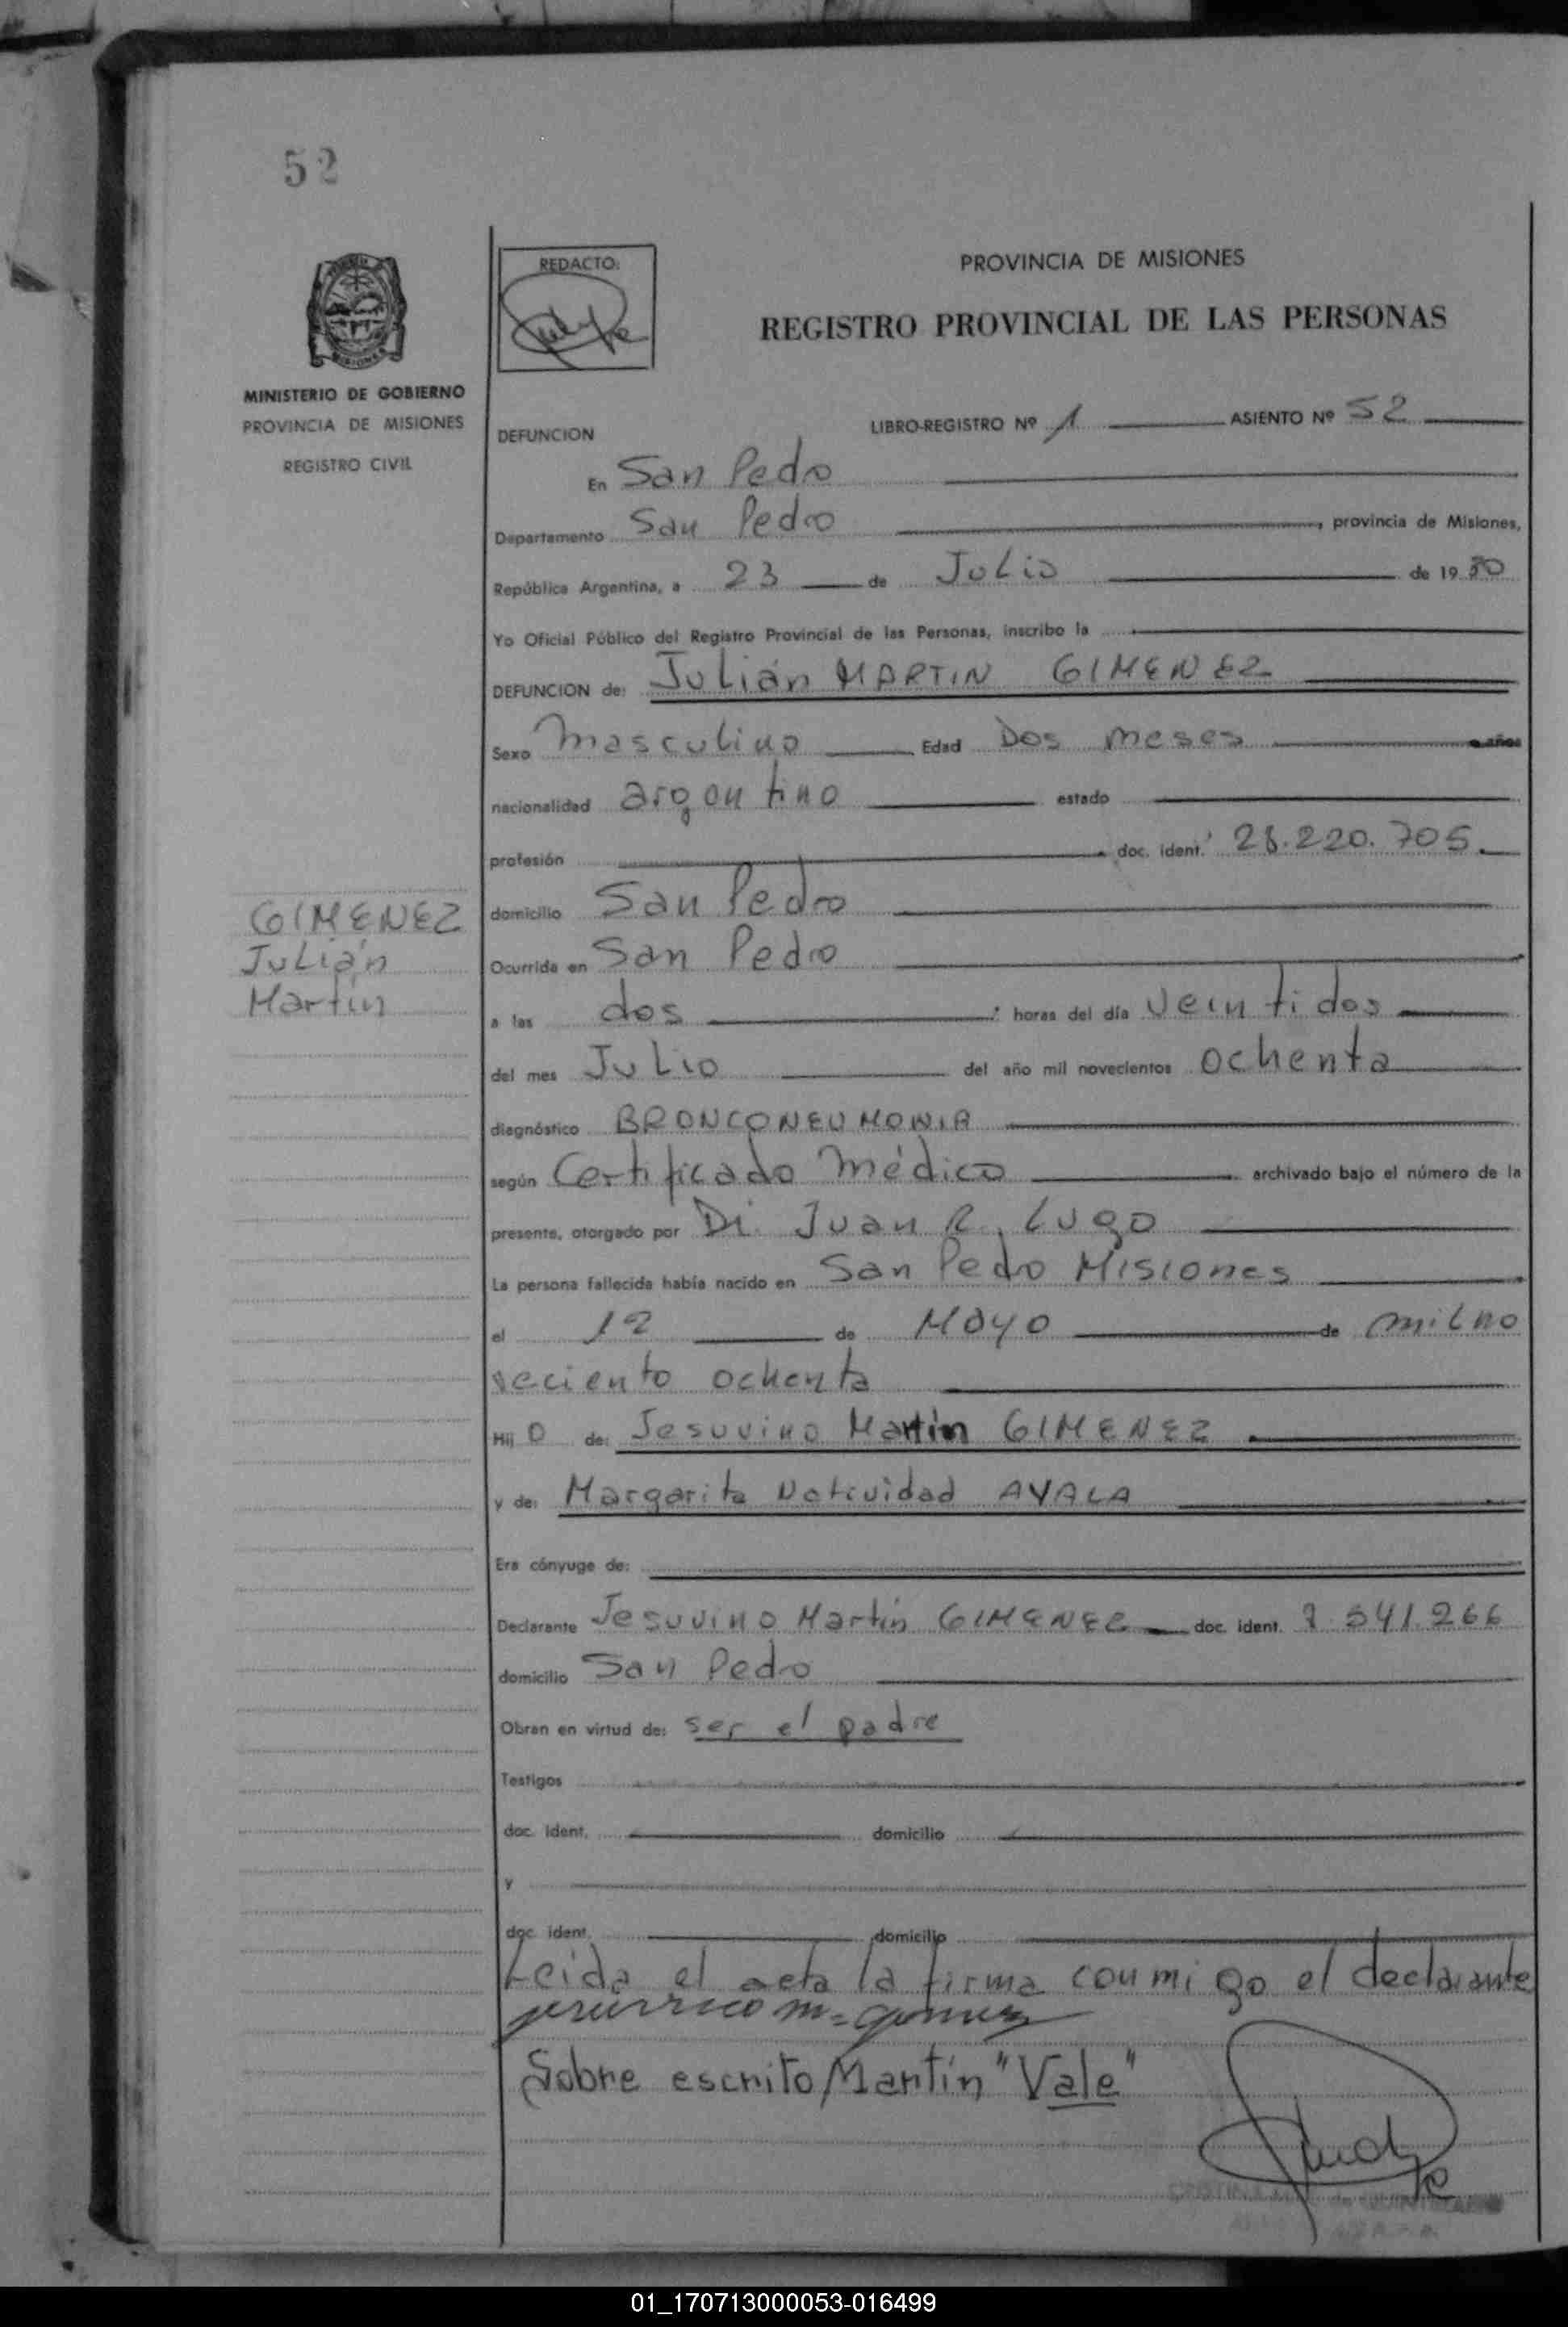 52
REDACTO:
PROVINCIA DE MISIONES
REGISTRO PROVINCIAL DE LAS PERSONAS
MISIONES
MINISTERIO DE GOBIERNO
PROVINCIA DE MISIONES
REGISTRO CIVIL
DEFUNCION LIBRO-REGISTRO Nº 1 ASIENTO Nº 52
En San Pedro
Departamento San Pedro, provincia de Misiones,
República Argentina, a 23 de Julio de 19 80
Yo Oficial Público del Registro Provincial de las Personas, inscribo la
DEFUNCION de: Julián MARTIN GIMENEZ
Sexo masculino Edad Dos meses años
nacionalidad argentino estado
profesión doc. ident. 28.220.705
GIMENEZ
Julián
Martín
domicilio San Pedro
Ocurrida en San Pedro
a las dos horas del día veintidos
del mes Julio del año mil novecientos ochenta
diagnóstico BRONCONEUMONIA
según Certificado médico archivado bajo el número de la
presente, otorgado por Dr. Juan R. Lugo
La persona fallecida había nacido en San Pedro Misiones
el 12 de Mayo de milno
veciento ochenta
Hij o de: Jesuvino Martín GIMENEZ
y de: Margarita Natividad AYALA
Era cónyuge de:
Declarante Jesuvino Martín GIMENEZ doc. ident. 7.541.266
domicilio San Pedro
Obran en virtud de: ser el padre
Testigos
doc. ident. domicilio
y
doc. ident. domicilio
Leida el acta la firma conmigo el declarante
Sobre escrito Martín "Vale"
01_170713000053-016499